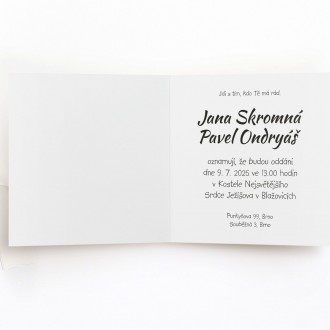 Jdi s tím, kdo Tě má rád.
Jana Skromná
Pavel Ondryáš
oznamují, že budou oddáni
dne 9. 7. 2025 ve 13.00 hodin
v Kostele Nejsvětějšího
Srdce Ježíšova v Blažovicích
Purkyňova 99, Brno
Souběžná 3, Brno